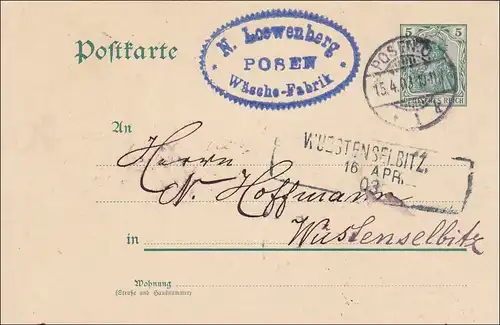 Postkarte
N. Loewenberg
POSEN
Wäsche-Fabrik
5 5
POSEN
15.4.
DEUTSCHES REICH
WUESTENSELBITZ.
16 APR.
03
An
Herrn
N. Hoffmann
in Wüstenselbitz
Wohnung
(Straße und Hausnummer)